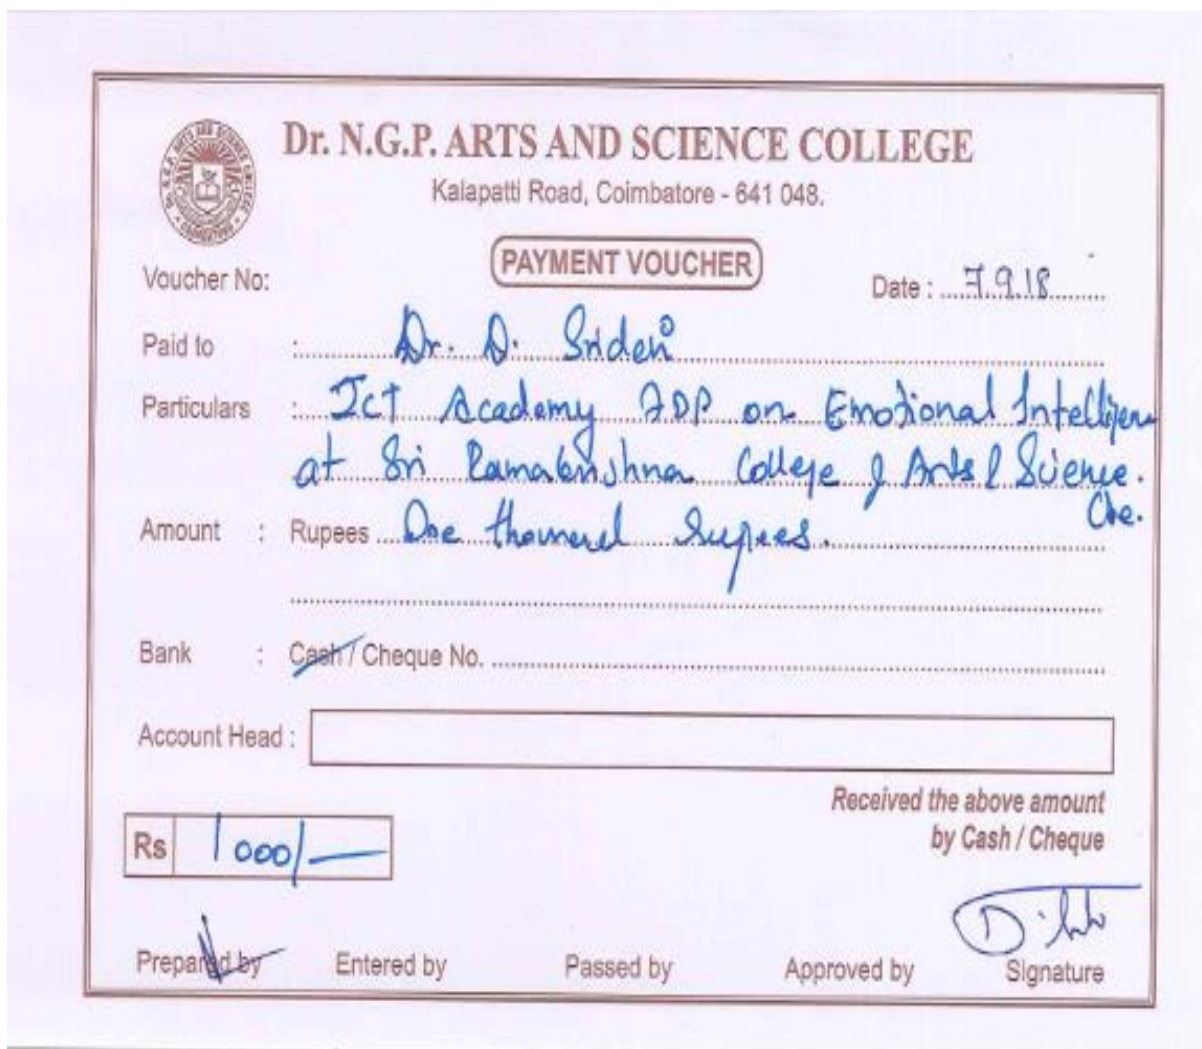 Dr. N.G.P. ARTS AND SCIENCE COLLEGE
Kalapatti Road, Coimbatore - 641 048.
PAYMENT VOUCHER
Voucher No:
Date : 7.9.18
Paid to : Dr. D. Sridevi
Particulars : ICT Academy FDP on Emotional Intelligence
at Sri Ramakrishna College of Arts & Science.
Cbe.
Amount : Rupees One thousand rupees.
Bank : Cash / Cheque No.
Account Head :
Received the above amount
by Cash / Cheque
Rs 1000/-
Prepared by Entered by Passed by Approved by Signature